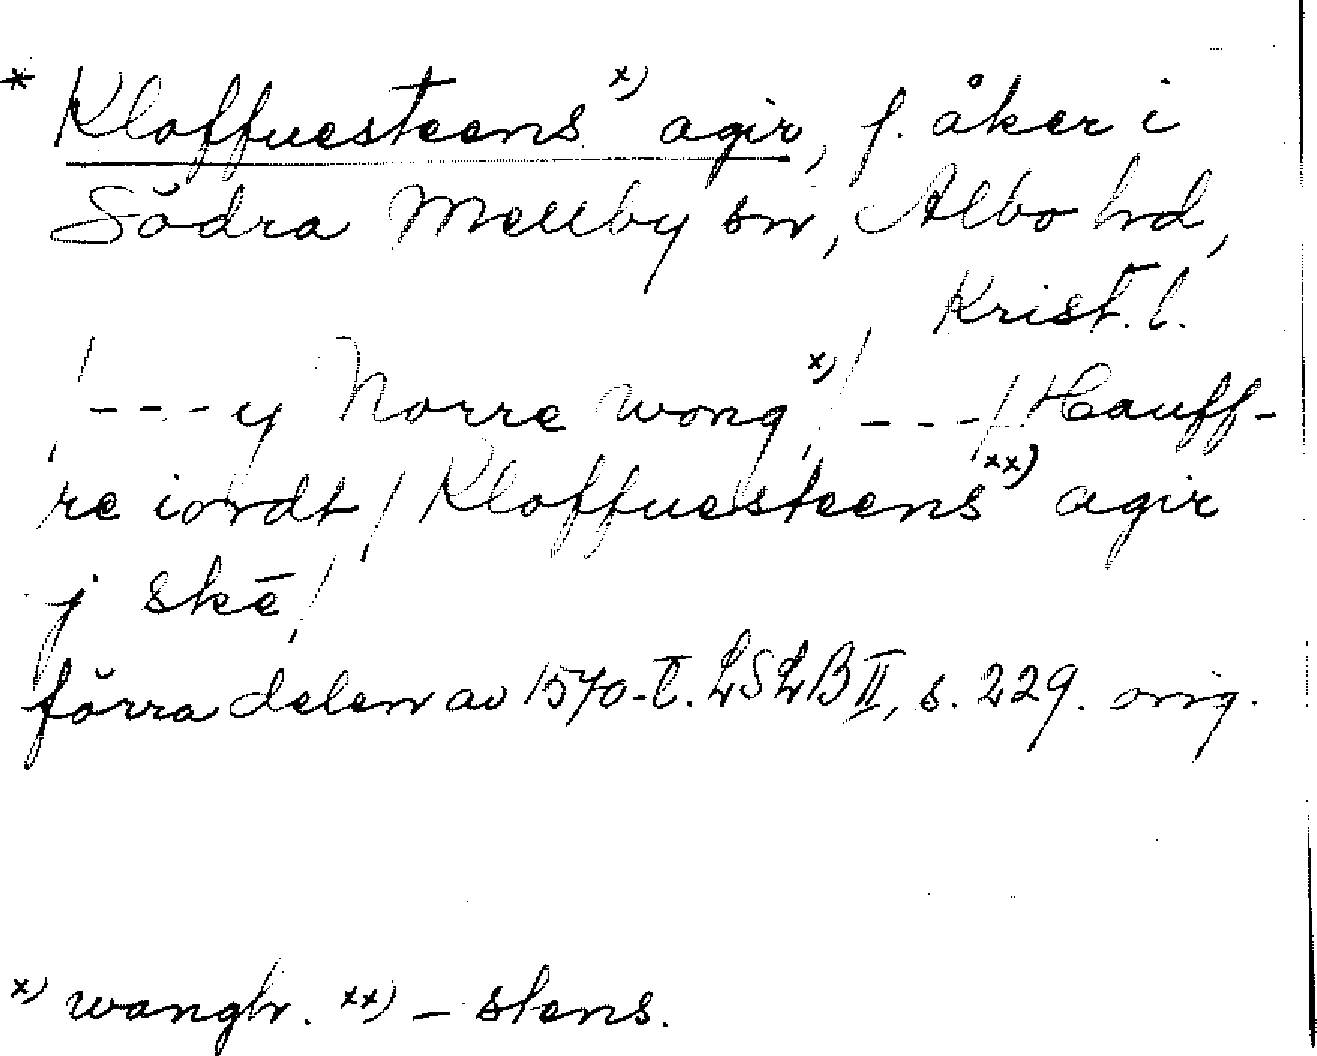 * Kloffuesteens x) agir, f. åker i
Södra Mellby sn, Albo hd,
Krist. l.
/---y Norre wong x)/---/Hauff-
re iordt/Kloffuesteens xx) agir
j skē/
förra delen av 1570-t. LSLB II, s. 229. orig.
x) wangh. xx) – stens.